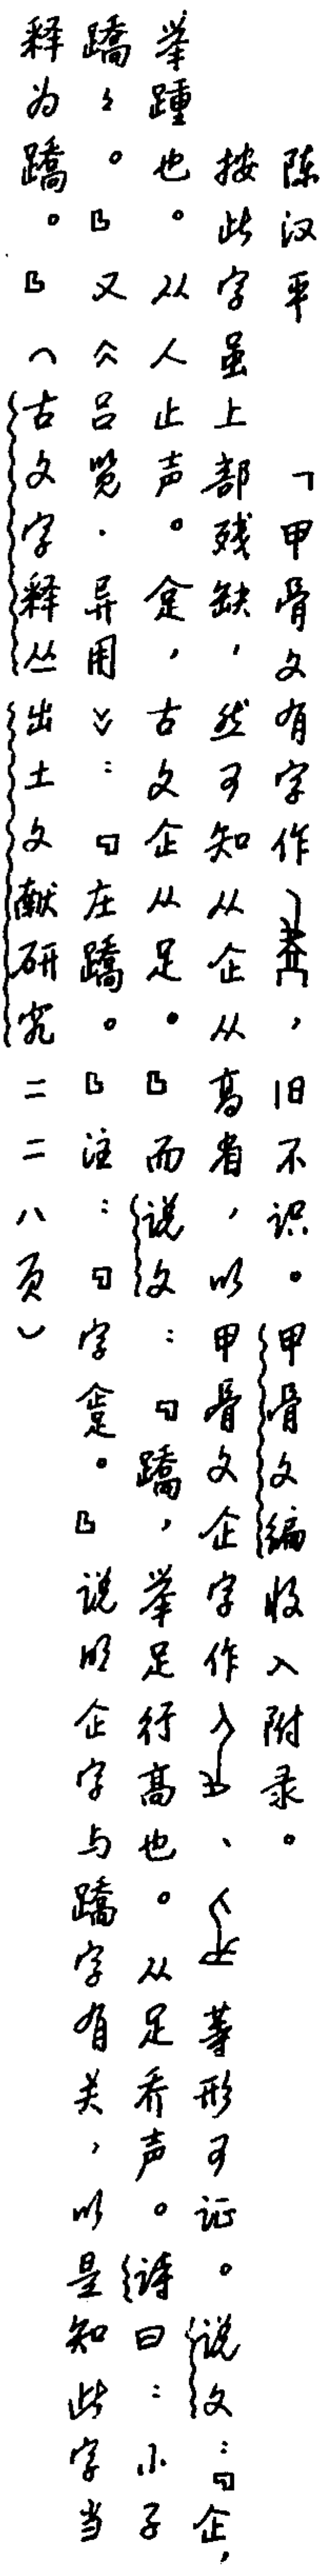 陈汉平 「甲骨文有字作，旧不识。甲骨文编收入附录。
按此字虽上部残缺，然可知从企从高省，以甲骨文企字作、等形可证。说文：『企，
举踵也。从人止声。𠈮，古文企从足。』而说文：『蹻，举足行高也。从足乔声。诗曰：小子
蹻〻。』又《吕览·异用》：『在蹻。』注：『字。』说明企字与蹻字有关，以是知此字当
释为蹻。』（古文字释丛 出土文献研究 二二八页）